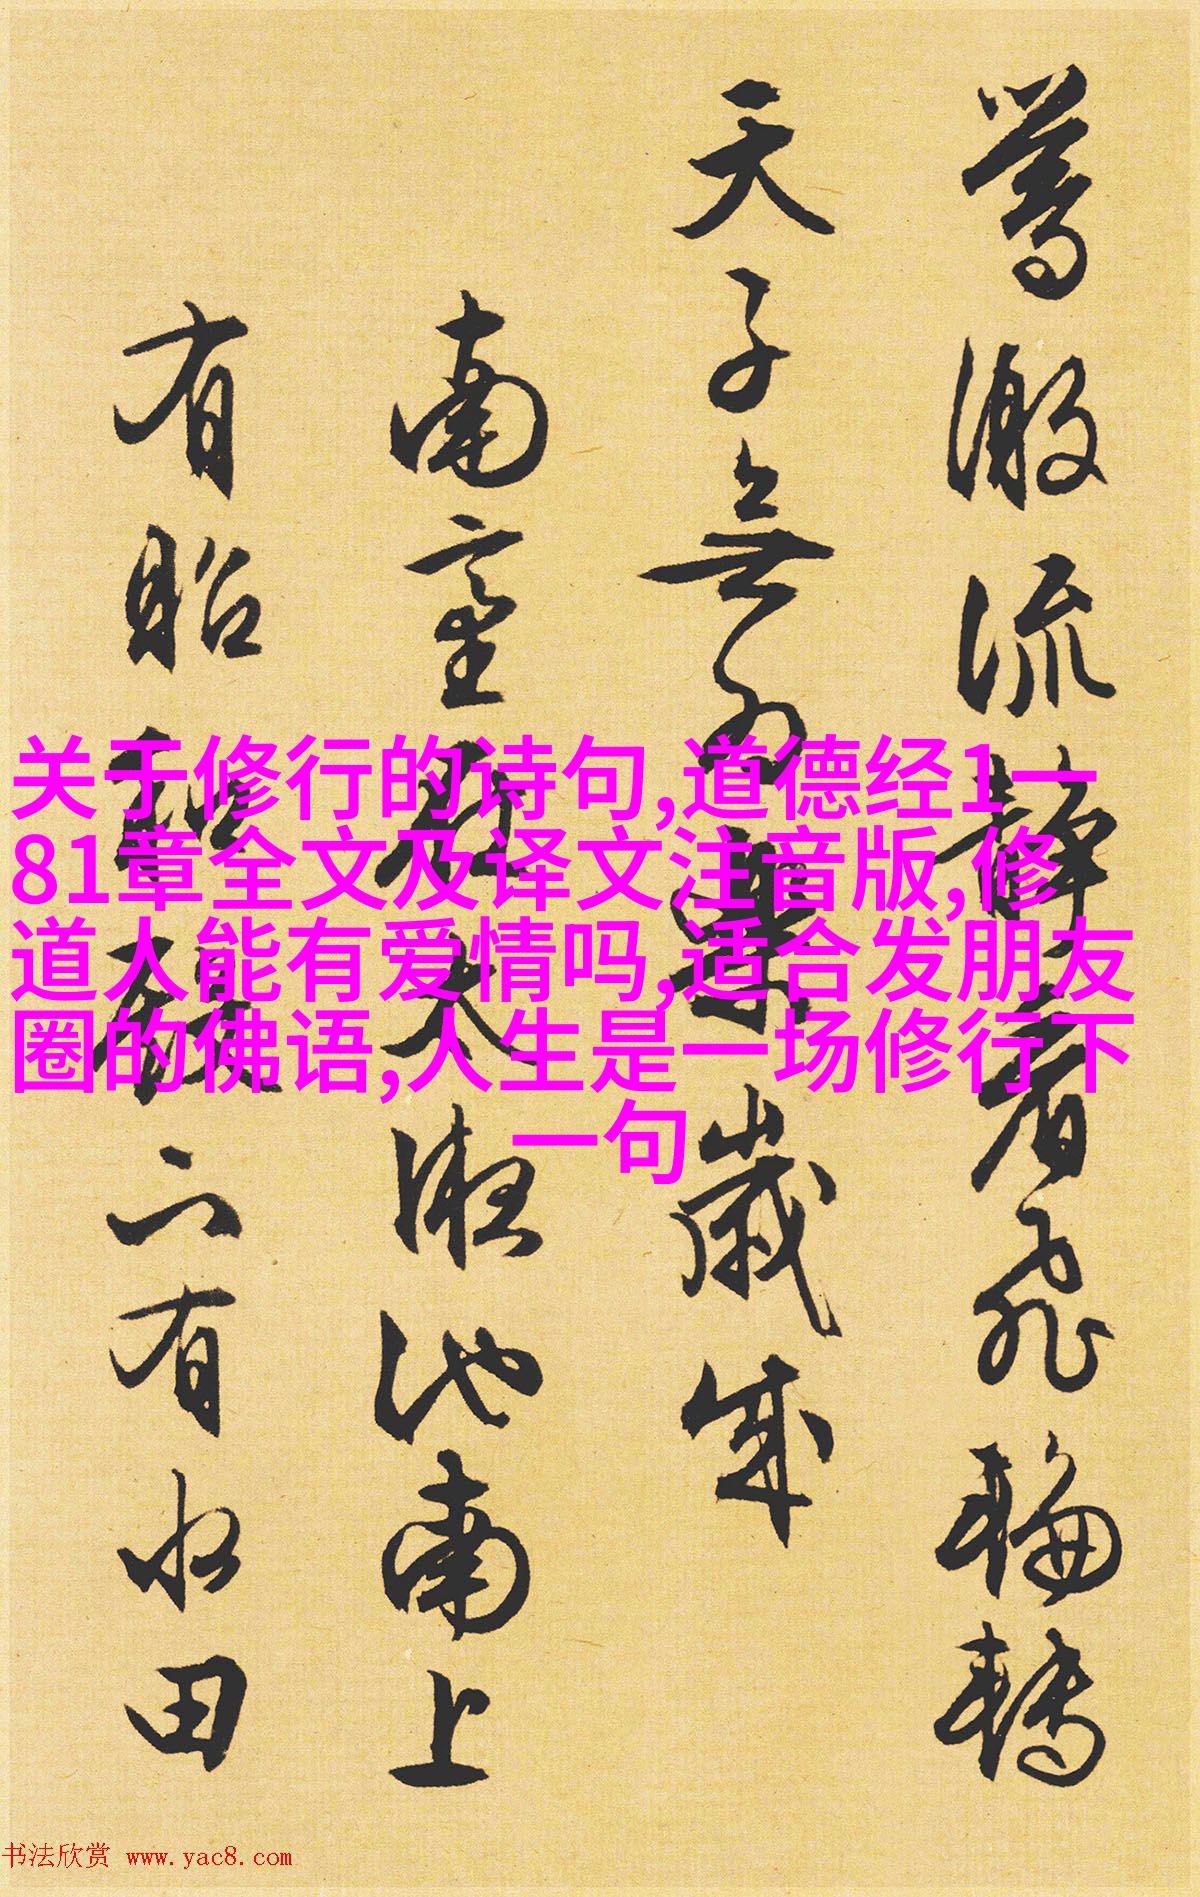 关于修行的诗句,道德经1一
81章全文及译文注音版,修
道人能有爱情吗,适合发朋友
圈的佛语,人生是一场修行下
一句
流静看飞轮转
天子无为乐岁成
南 太液池南上
有
有水田
书法欣赏 www.yac8.com